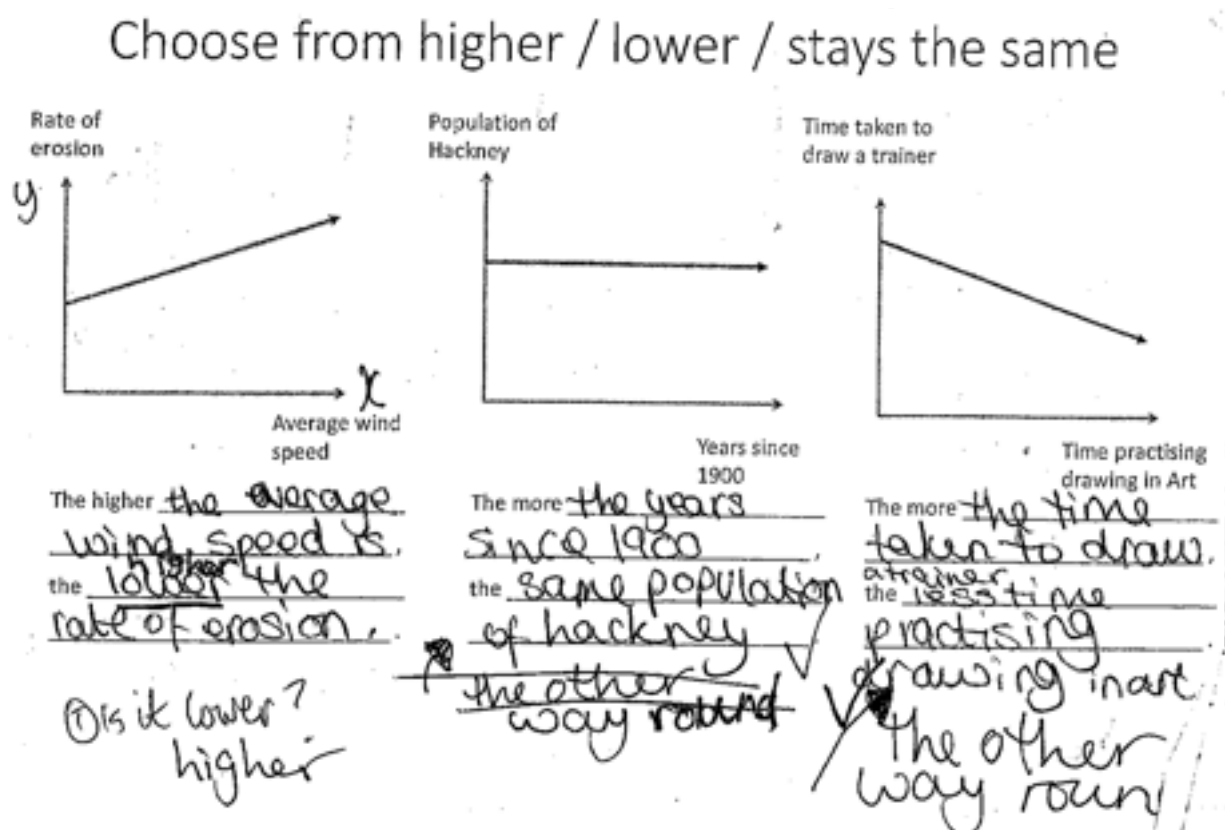 Choose from higher / lower / stays the same
Rate of
erosion
y
x
Average wind
speed
The higher the average
wind speed is.
higher
the lower the
rate of erosion.
① is it lower?
higher
Population of
Hackney
Years since
1900
The more the years
since 1900
the same population
of hackney
the other
way round
Time taken to
draw a trainer
Time practising
drawing in Art
The more the time
taken to draw
a trainer
the less time
practising
drawing in art
the other
way roun